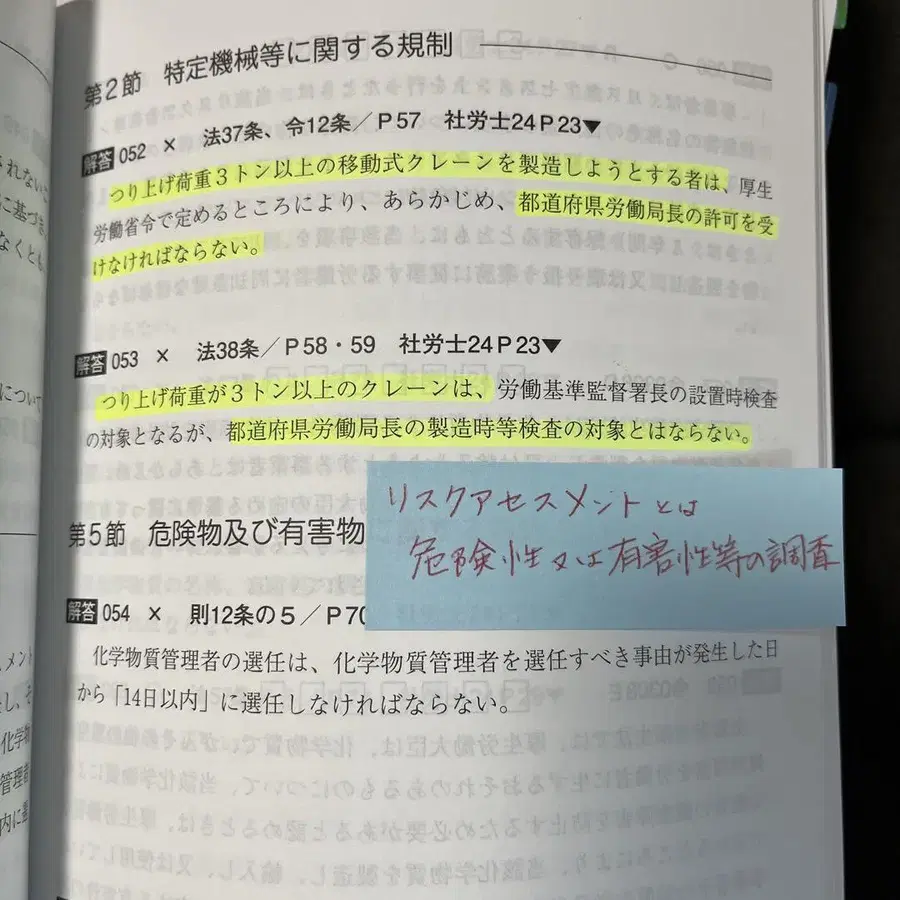 第2節 特定機械等に関する規制
解答 052 × 法37条、令12条／P57 社労士24P23▼
つり上げ荷重3トン以上の移動式クレーンを製造しようとする者は、厚生
労働省令で定めるところにより、あらかじめ、都道府県労働局長の許可を受
けなければならない。
解答 053 × 法38条／P58・59 社労士24P23▼
つり上げ荷重が3トン以上のクレーンは、労働基準監督署長の設置時検査
の対象となるが、都道府県労働局長の製造時等検査の対象とはならない。
リスクアセスメントとは
危険性又は有害性等の調査
第5節 危険物及び有害物
解答 054 × 則12条の5／P70
化学物質管理者の選任は、化学物質管理者を選任すべき事由が発生した日
から「14日以内」に選任しなければならない。